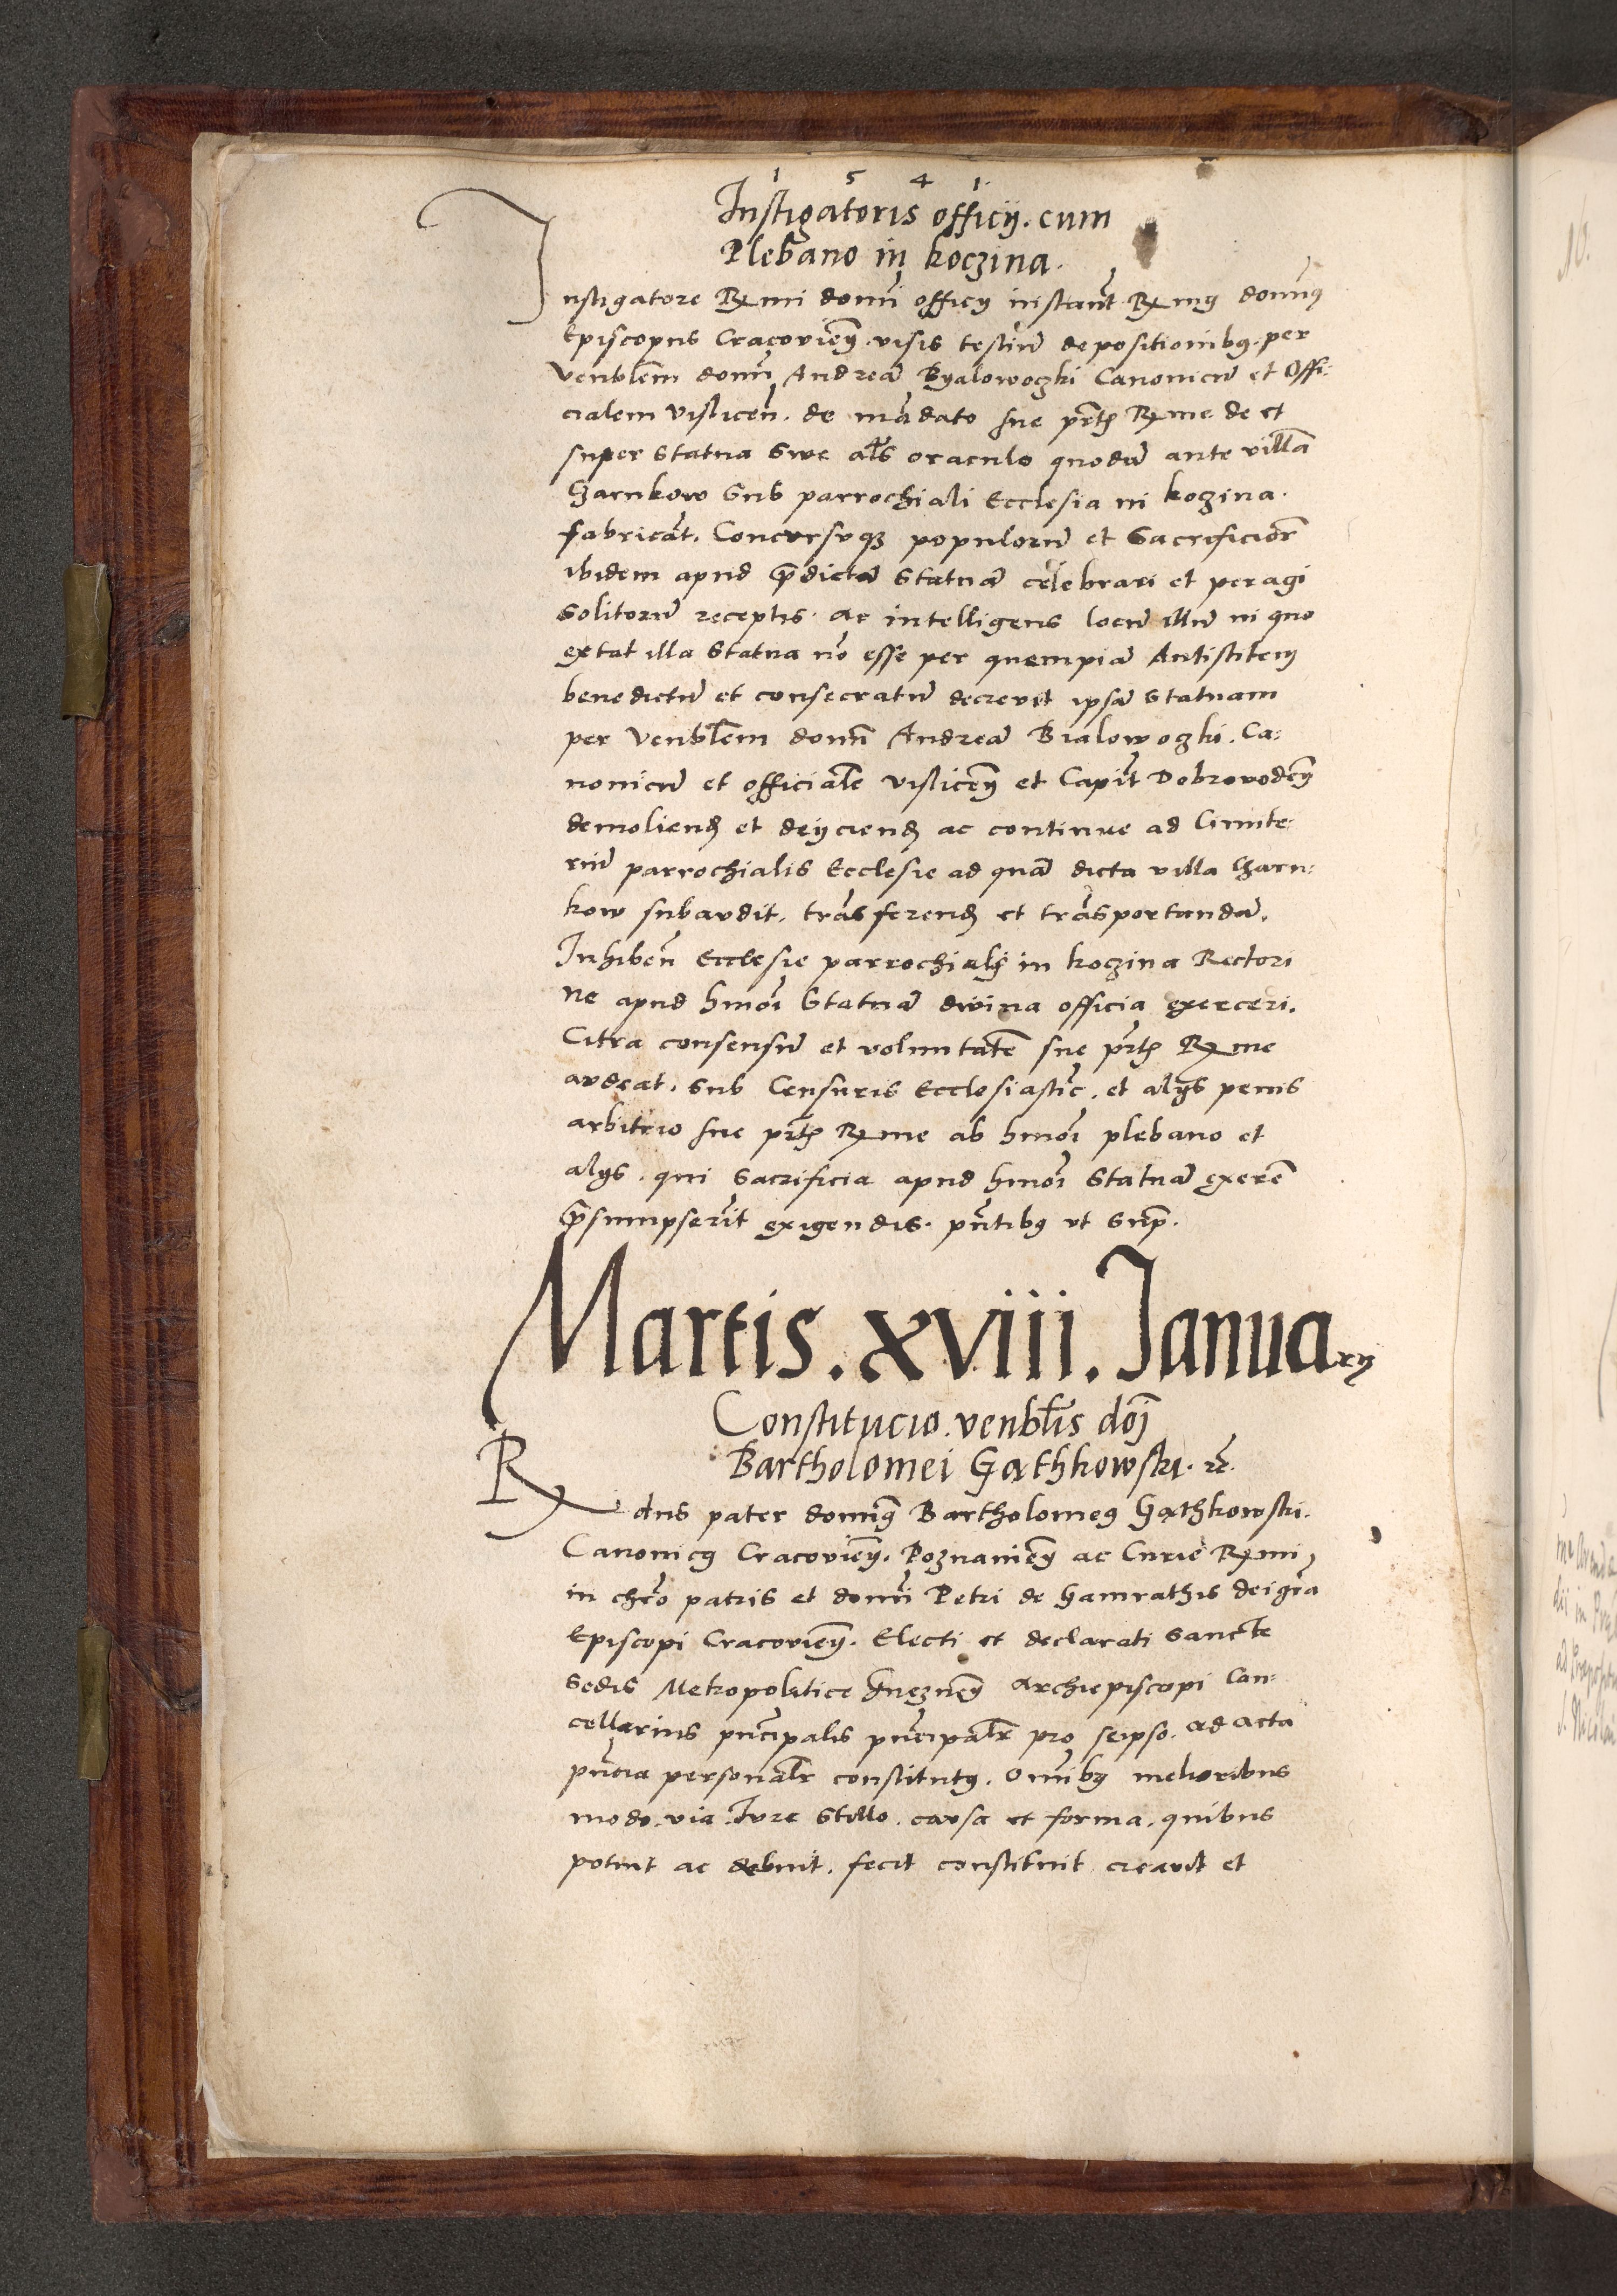 1 5 4 1.
Instigatoris officij. cum
Plebano in koczina.
Instigatore Rmi domi officij instant Rmus domus
Episcopus Cracovien. visis testiu depositionibus. per
Venblem domi Andrea Byalowoczki Canonicu et Offi:
cialem vislicen. de madato sue prtis Rme de et
super statua sive als oraculo quoda ante villa
Czarnkow sub parrochiali Ecclesia in koczina.
fabricat. Concursuque populoru et sacrificior
ibidem apud predicta statua celebrari et peragi
solitoru receptis. ac intelligens locu illu in quo
extat illa statua no esse per quempia Antistitem
benedictu et consecratu decrevit ipsa statuam
per Venblem domi Andrea Bialowoczki. Ca:
nonicu et officiale vislicen et Capit Dobrovoden
demoliend et deijciend ac continue ad Cimite:
riu parrochialis Ecclesie ad qua dicta villa Czarn:
kow subaudit, trasferend et trasportanda.
Inhiben Ecclesie parrochialis in koczina Rectori
ne apud hmoi statua divina officia exerceri.
Citra consensu et voluntate sue prtis Rme
audeat. sub Censuris Ecclesiastic. et alijs penis
arbitrio sue prtis Rme ab hmoi plebano et
alijs. qui sacrificia apud hmoi statua exere
presumpserit exigendis. pntibus ut sup.
Martis. xviii. Januarij
Constitucio. venblis doi
Bartholomei Gathkowski. etc.
Rdus pater domus Bartholomeus Gathkowski.
Canonicus Cracovien. Poznanien ac Curie Rmi
in chro patris et domi Petri de Gamrathis dei gra
Episcopi Cracovien. Electi et declarati sancte
sedis Metropolitice Gneznen Archiepiscopi Can:
cellarius principalis principalr pro seipso. ad acta
pncia personalr constitutus. omibus melioribus
modo. via. Jure stillo. causa et forma. quibus
potuit ac debuit. fecit constituit creavit et